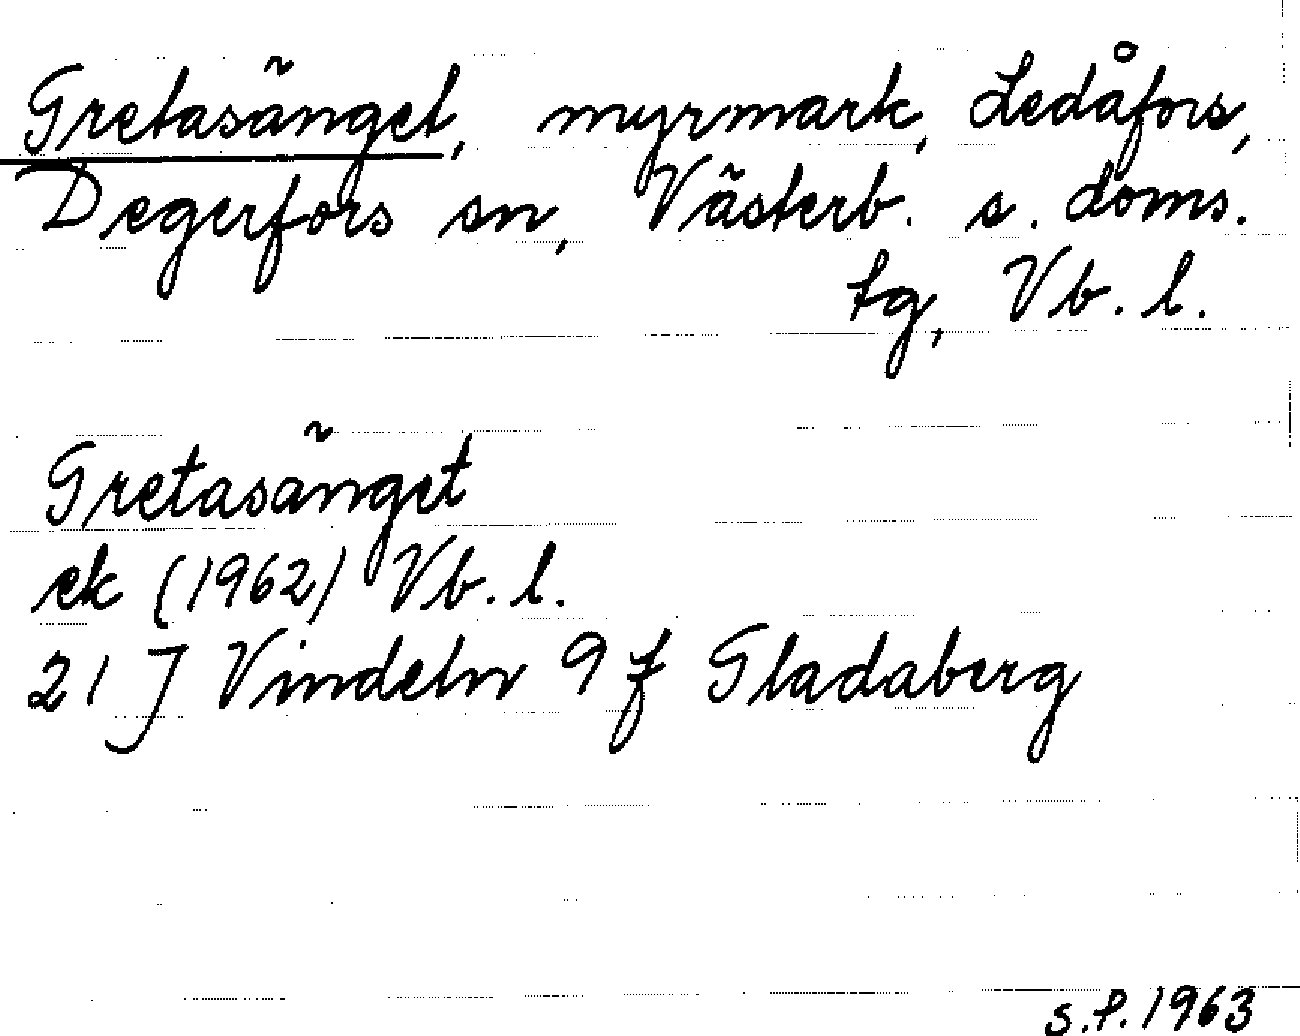 Gretasänget, myrmark, Ledåfors,
Degerfors sn, Västerb. s. doms.
tg, Vb. l.
Gretasänget
ek (1962) Vb. l.
21 J Vindeln 9 f Gladaberg
s.f. 1963